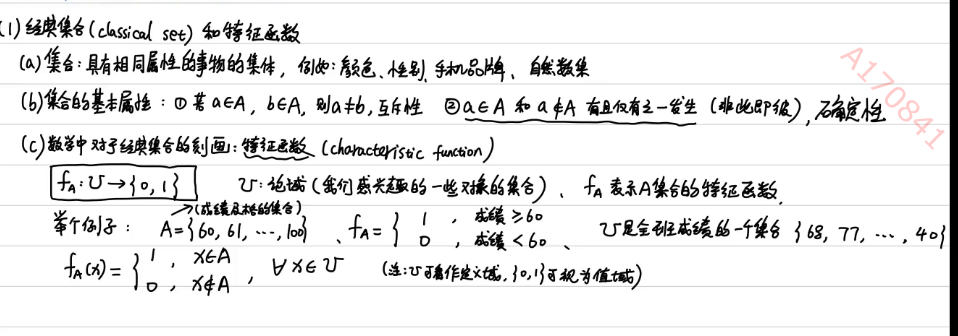 (1) 经典集合(classical set) 和特征函数
(a) 集合:具有相同属性的事物的集体,例如:颜色、性别、手机品牌、自然数集
(b) 集合的基本属性:① 若 a∈A, b∈A, 则 a≠b, 互斥性 ② a∈A 和 a∉A 有且仅有之一发生 (非此即彼), 确定性
A170841
(c) 数学中对于经典集合的刻画:特征函数 (characteristic function)
f_A: U→{0, 1} U: 论域 (我们感兴趣的一些对象的集合)、f_A 表示A集合的特征函数.
→(成绩及格的集合)
举个例子: A={60, 61, ..., 100}、f_A = { 1, 成绩≥60
0, 成绩<60、U是全班成绩的一个集合 {68, 77, ..., 40}
f_A(x) = { 1, x∈A
0, x∉A , ∀x∈U (注:U可看作定义域, {0,1}可视为值域)